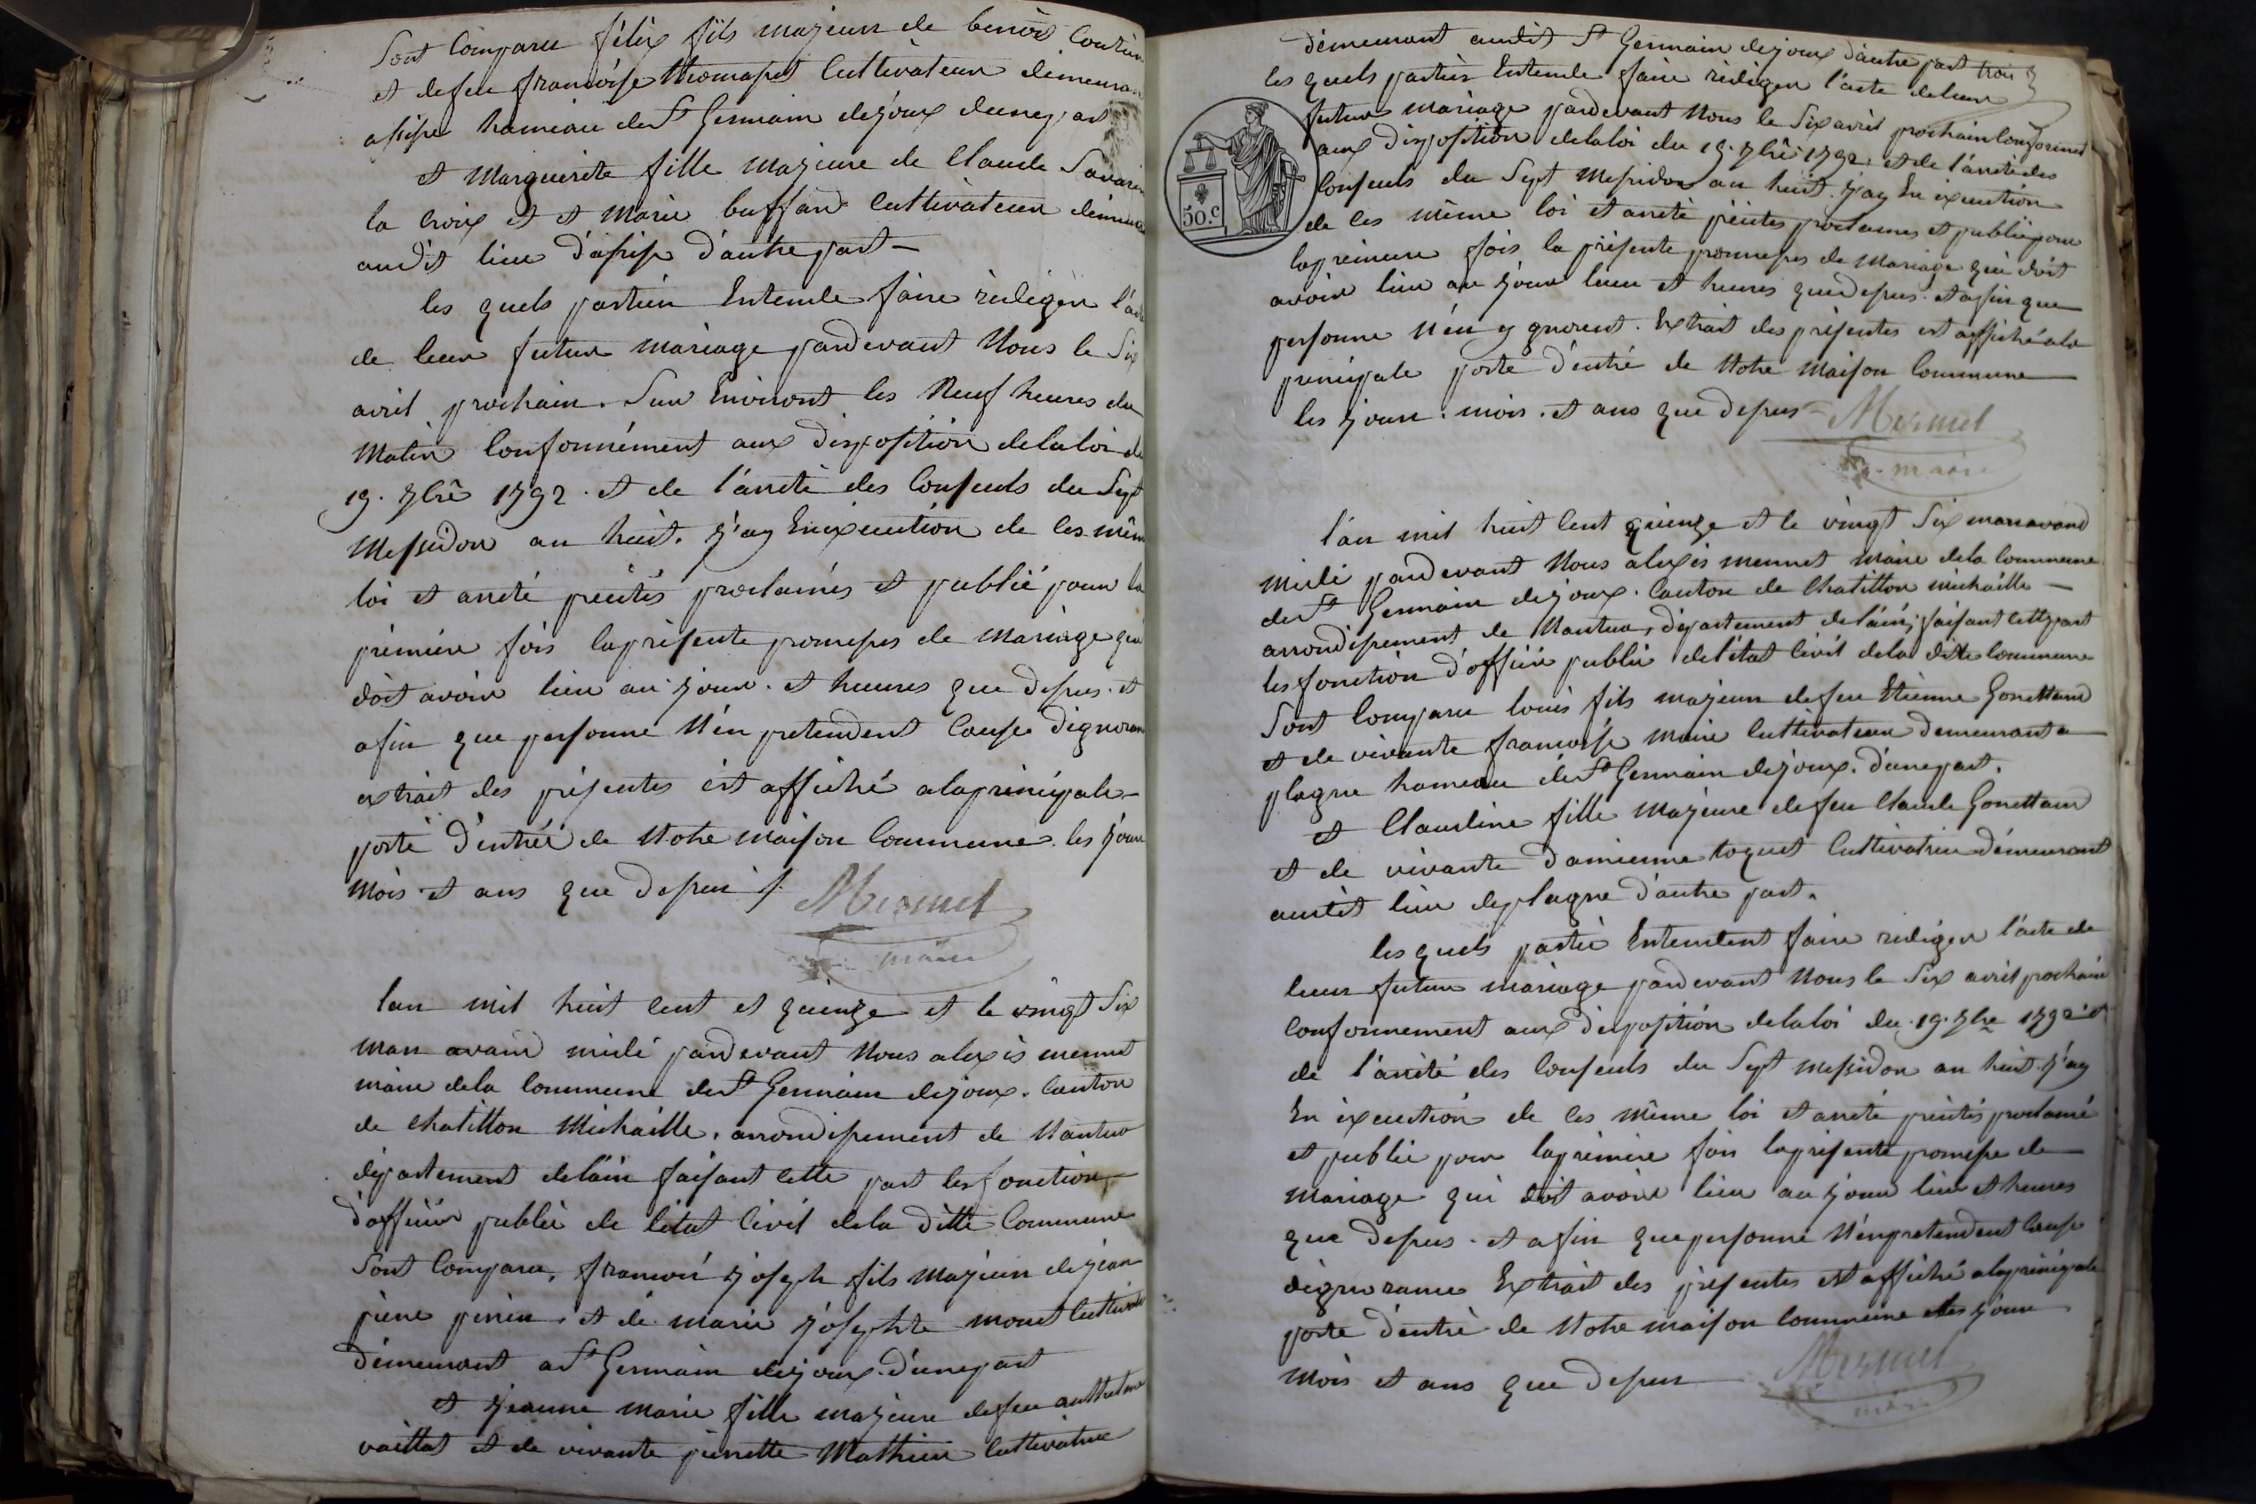 Sont Comparu félix fils majeur de benoit
et defeu francoise thomasset Cultivateur demeuran
hameau de St Germain dejoux dunepart
et Marguerite fille majeure de Claude Savarin
la croix et et Marie buffard Cultivateur demeura
audit lieu d'assise d'autre part —
les quels partien Entende faire rediger l'act
de leur futur mariage pardevant Nous le Six
avril prochain. Sur Environt les Neuf heures du
Matin Conformément aux disposition delaloi de
19. 7bre 1792. et de l'arreté des Consuls du Sept
Messidor an huit. j'ay Enexecution de ces mêm
loi et areté précités proclamés et publié pour la
première fois laprésente promesses de Mariage qui
doit avoir lieu au jour. et heures que depus. et
afin que personne N'én pretendent Cause dignoran
extrait des présentes est affiché alaprincipale
porte d'entrée de Notre maison Commune les jour
Mois et ans que depus /. Mermet
maire
lan mil huit cent et quinze et le vingt Six
mars avand midi pardevant Nous alexis mermet
maire dela Commune de St Germain dejoux. Canton
de Chatillon Michaille. arrondissement de Nantua
département delain faisant cette part les fonction
d'officier public de l'état Civil dela ditte Commune
Sont Comparu, francois joseph fils majeur dejean
et de marie josephte monet Cultivat
démeurant a St Germain dejoux. d'unepart
et jeanne marie fille majeure defeu anthelme
vaillat et de vivante pierrette Mathieu Cultivatrice
démeurant audit St Germain dejoux d'autre part trois
les quels partien Entende faire rediger l'acte deleur
futur mariage pardevant Nous le Six avril prochain Conformmet
aux disposition delaloi du 19. 7bre 1792. et de l'areté des
Consuls du Sept Messidor an huit. j'ay En execution
de ces même loi et areté précités proclamés et publié pour
lapremiere fois la présente promesses de Mariage qui doit
avoir lieu au jour lieu et heures que depus. et affin que
personne N'én y gnorent. Extrait des présentes est affiché ala
principale porte d'entré de Notre Maison Commune
les jour. mois. et ans que depus Mermet
maire
50.c
l'an mil huit Cent quinze et le vingt Six mars avand
midi pardevant Nous alexis mermet maire dela Commune
de St Germain dejoux. Canton de Chatillon michaille —
arrondissement de Nantua, département de l'ain, faisant cette part
les fonction d'officier public del'état Civil dela ditte Commune
Sont Comparu louis fils majeur defeu Etienne Gonettand
et de vivante francoise Marie Cultivateur demeurant a
plagne hameau de St Germain dejoux. d'unepart.
et Claudine fille majeure defeu Claude Gonettand
et de vivante damienne toquet Cultivatrice démeurant
audit lieu deplagne d'autre part.
les quels partie Entendent faire rediger l'acte de
leur futur mariage pardevant Nous le Six avril prochain
Conformement aux disposition delaloi du. 19. 7bre 1792 et
de l'areté des Consuls du Sept messidor an huit. j'ay
En execution de ces même loi et areté précités proclamé
et publié pour lapremière fois laprésente promesse de
mariage qui doit avoir lieu au jour lieu et heures
que depus. et afin que personne N'énpretendent Cause
dignorance Extrait des présentes est affiché alaprincipale
porte d'entré de Notre maison Commune et les jour
Mois et ans que depus Mermet
maire